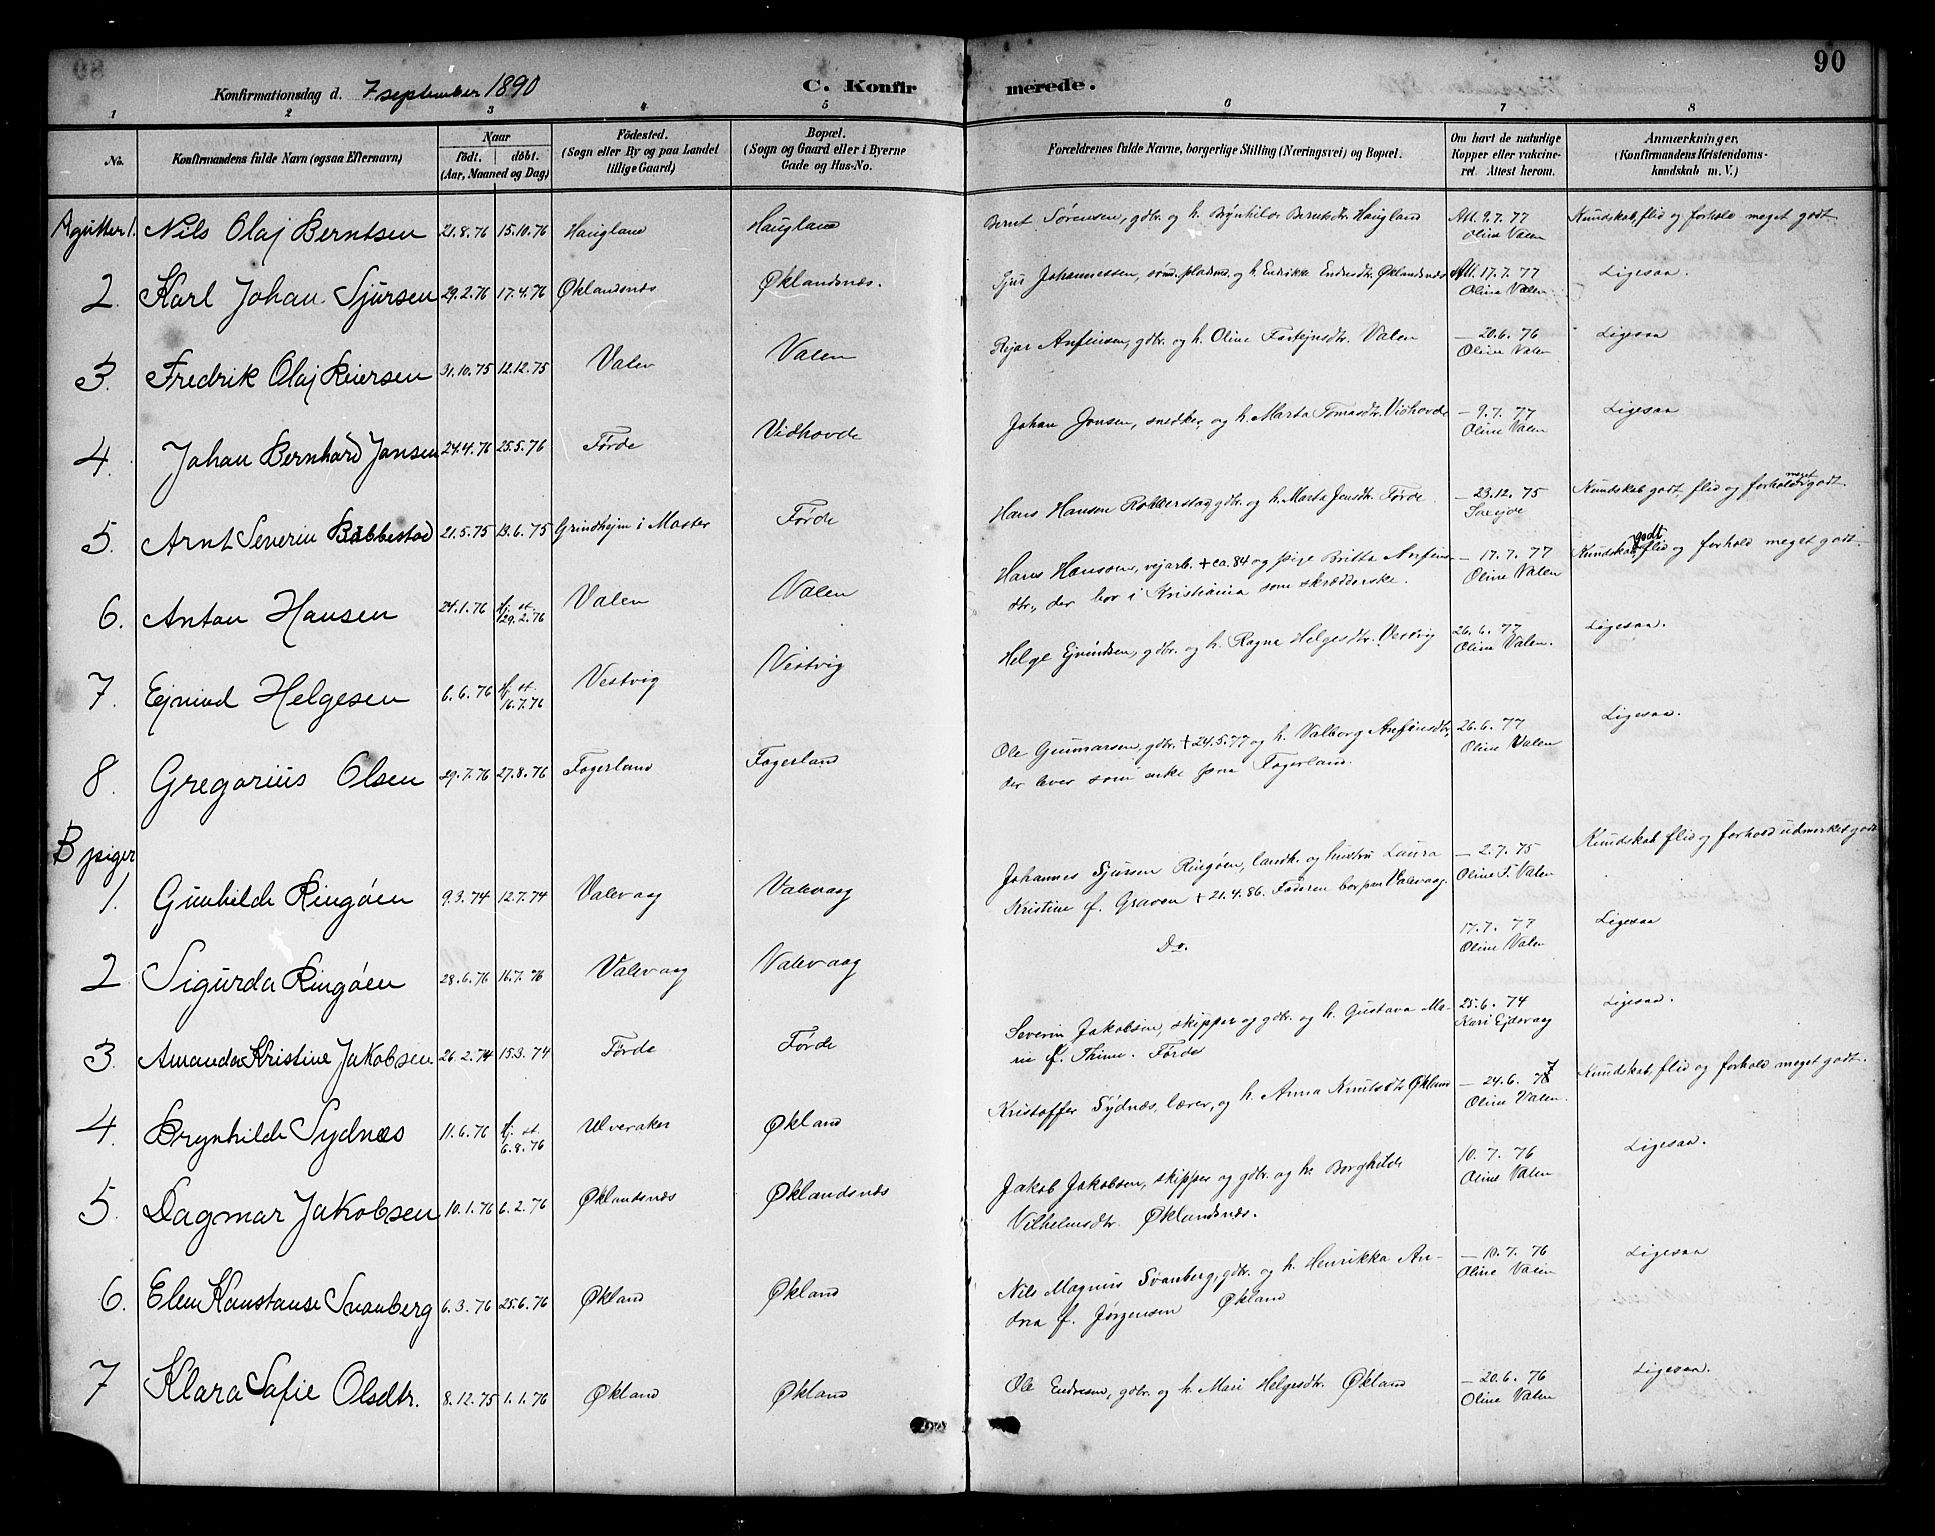 90
Konfirmationsdag d. 7 september 1890 C. Konfirmerede.
1 2 3 4 5 6 7 8
No. Konfirmandens fulde Navn (ogsaa Efternavn) Naar født. døbt. (Aar, Maaned og Dag) Fødested. (Sogn eller By og paa Landet tillige Gaard) Bopæl. (Sogn og Gaard eller i Byerne Gade og Hus-No. Forældrenes fulde Navne, borgerlige Stilling (Næringsvei) og Bopæl. Om havt de naturlige Kopper eller vakcineret. Attest herom. Anmærkninger. (Konfirmandens Kristendomskundskab m. V.)
A gutter 1. Nils Olaj Berntsen 21.8.76 15.10.76 Haugland Haugland Bernt Sørensen, gdbr. og h. Brynhilde Berntsdtr. Haugland Att. 9.7.77 Kundskab, flid og forhold meget godt
Oline Valen
2. Karl Johan Sjursen 29.2.76 17.4.76 Øklandsnæs Øklandsnæs. Sjur Johannessen, pladsmd. og h. Endrikke Endresdtr. Øklandsnæs Att. 17.7.77 Ligesaa.
Oline Valen
3. Fredrik Olaj Reiersen 31.10.75 12.12.75 Valen Valen Rejar Anfinsen, gdbr. og h. Oline Valen — 20.6.76 Ligesaa
Oline Valen
4. Johan Bernhard Jansen 24.4.76 25.5.76 Førde Vidhovde Johan Jonsen, snedker, og h. Marta Tomasdtr. Vidhovde — 9.7.77 Ligesaa
Oline Valen
5. Arnt Severin Babbestad 21.5.75 13.6.75 Grindhejm i Moster Førde Hans Hansen gdbr. og h. Marta Jensdtr. Førde — 23.12.75 Kundskab godt, flid og forhold meget godt.
6. Anton Hansen 24.1.76 Hj. st. 29.2.76 Valen Valen Hans Hansen, vejarb. + ca. 84 og pige Britta Anfins- — 17.7.77 Kundskab godt flid og forhold meget godt.
dtr., der bor i Kristiania som skrædderske. Oline Valen
7. Ejvind Helgesen 6.6.76 Hj. st. 16.7.76 Vestvig Vestvig Helge Ejvindsen, gdbr. og h. Ragna Helgesdtr. Vestvig 26.6.77 Ligesaa.
Oline Valen.
8. Gregorius Olsen 29.7.76 27.8.76 Fagerland Fagerland Ole Gunnarsen, gdbr. + 24.5.77 og h. Valborg Anfinsdtr 26.6.77 Ligesaa.
der lever som enke paa Fagerland. Oline Valen
B piger
1. Gunhilde Ringøen 9.3.74 12.7.74 Valevaag Valevaag Johannes Sjursen Ringøen, landh. og hustru Laura — 2.7.75 Kundskab flid og forhold udmerket godt
Kristine f. Graven + 21.4.86. Faderen bor paa Valevaag. Oline T. Valen
2 Sigurda Ringøen 28.6.76 16.7.76 Valevaag Valevaag Do. 17.7.77 Ligesaa
Oline Valen
3. Amanda Kristine Jakobsen 26.2.74 15.3.74 Førde Førde Severin Jakobsen, skipper og gdbr. og h. Gustava Ma- 25.6.74 Ligesaa.
rie f. Thime. Førde Kari Ejdsvaag
4. Brynhilde Sydnæs 11.6.76 Hj. st. 6.8.76 Ulveraker Økland Kristoffer Sydnæs, lærer, og h. Anna Knutsdtr. Økland — 24.6.77 Kundskab, flid og forhold meget godt.
Oline Valen.
5. Dagmar Jakobsen 10.1.76 6.2.76 Øklandsnæs Øklandsnæs Jakob Jakobsen, skipper og gdbr. og h. Borghilde 10.7.76 Ligesaa.
Vilhelmsdtr. Øklandsnæs. Oline Valen
6. Elen Konstanse Svanberg 6.3.76 25.6.76 Økland Økland Nils Magnus Svanberg, gdbr. og h. Henrikka An- — 10.7.76 Ligesaa
drea f. Jørgensen Økland Oline Valen
7 Klara Safie Olsdtr. 8.12.75 1.1.76 Økland Økland Ole Endresen, gdbr. og h. Mari Helgesdtr. Økland — 20.6.76 Ligesaa.
Oline Valen